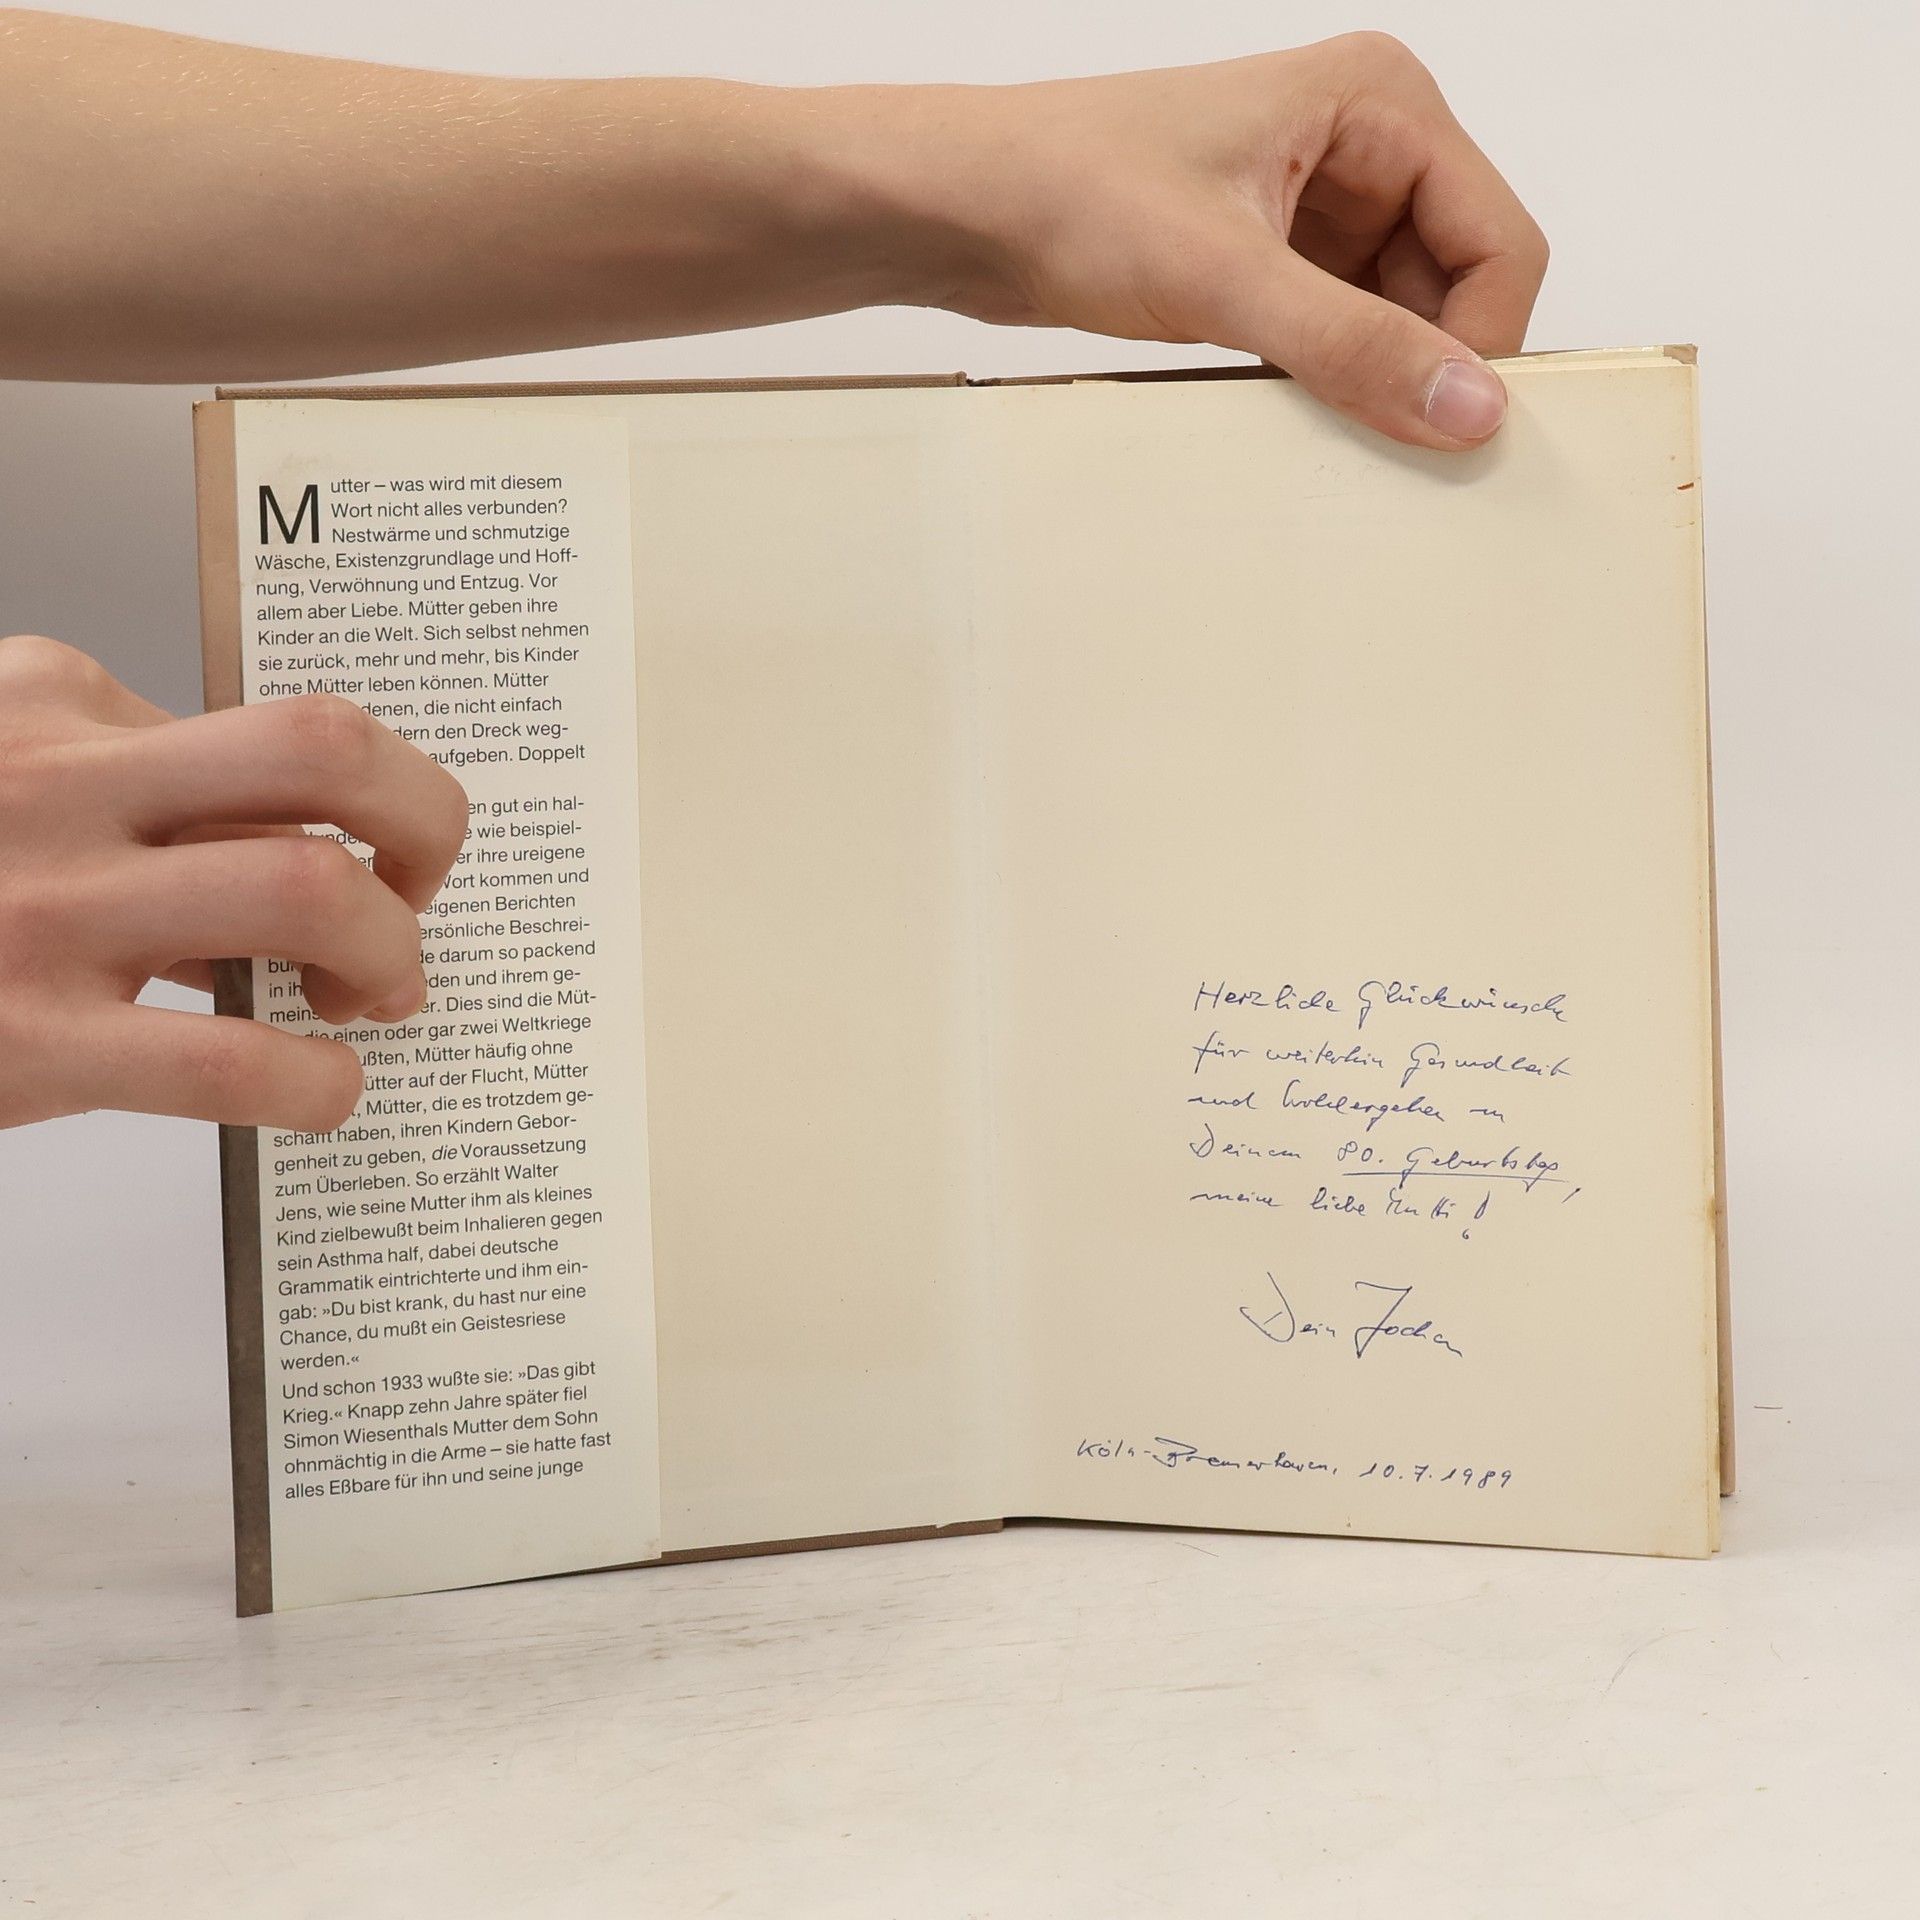 Mutter – was wird mit diesem
Wort nicht alles verbunden?
Nestwärme und schmutzige
Wäsche, Existenzgrundlage und Hoff-
nung, Verwöhnung und Entzug. Vor
allem aber Liebe. Mütter geben ihre
Kinder an die Welt. Sich selbst nehmen
sie zurück, mehr und mehr, bis Kinder
ohne Mütter leben können. Mütter
denen, die nicht einfach
den Dreck weg-
aufgeben. Doppelt
gut ein hal-
wie beispiel-
ihre ureigene
Wort kommen und
eigenen Berichten
Beschrei-
darum so packend
in und ihrem ge-
Dies sind die Müt-
einen oder gar zwei Weltkriege
Mütter häufig ohne
auf der Flucht, Mütter
Mütter, die es trotzdem ge-
schafft haben, ihren Kindern Gebor-
genheit zu geben, die Voraussetzung
zum Überleben. So erzählt Walter
Jens, wie seine Mutter ihm als kleines
Kind zielbewußt beim Inhalieren gegen
sein Asthma half, dabei deutsche
Grammatik eintrichterte und ihm ein-
gab: »Du bist krank, du hast nur eine
Chance, du mußt ein Geistesriese
werden.«
Und schon 1933 wußte sie: »Das gibt
Krieg.« Knapp zehn Jahre später fiel
Simon Wiesenthals Mutter dem Sohn
ohnmächtig in die Arme – sie hatte fast
alles Eßbare für ihn und seine junge
Herzliche Glückwünsche
für weiterhin Gesundheit
und Wohlergehen zu
Deinem 80. Geburtstag,
meine liebe Mutti!
Dein Jochen
Köln-Bremerhaven, 10.7.1989